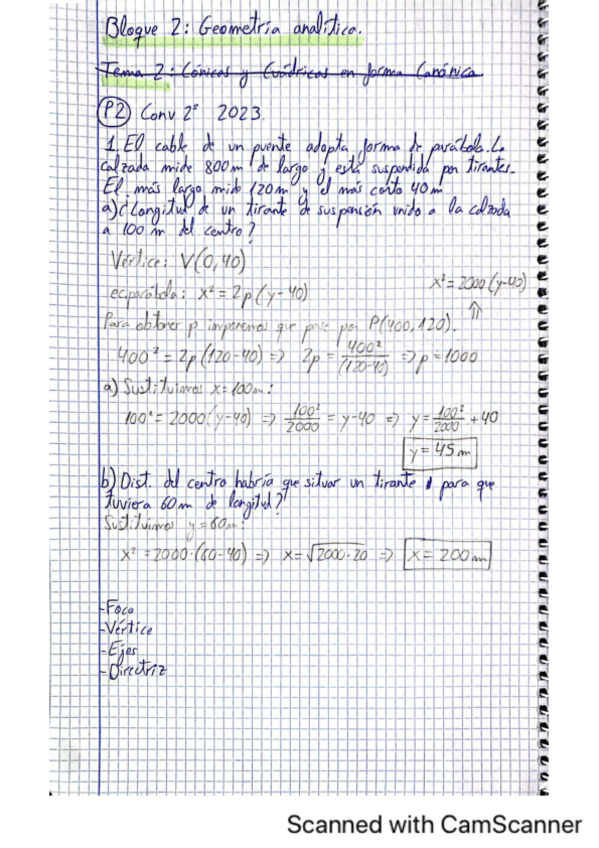 Bloque 2: Geometría analítica.
Tema 2: Cónicas y Cuádricas en forma Canónica
P2 Conv 2ª 2023
1. El cable de un puente adopta forma de parábola. La
calzada mide 800m de largo y está suspendida por tirantes.
El más largo mide 120m y el más corto 40m
a) ¿Longitud de un tirante de suspensión unido a la calzada
a 100 m del centro?
Vértice: V(0,40)
ec parábola: x² = 2p(y-40)
x² = 2000(y-40)
⇑
Para obtener p imponemos que pase por P(400,120).
400² = 2p(120-40) => 2p = 400²/(120-40) => p = 1000
a) Sustituimos x=100m:
100² = 2000(y-40) => 100²/2000 = y-40 => y = 100²/2000 + 40
y = 45m
b) Dist. del centro habría que situar un tirante para que
tuviera 60m de longitud?
Sustituimos y=60m:
x² = 2000·(60-40) => x = √2000·20 => x = 200m
-Foco
-Vértice
-Ejes
-Directriz
Scanned with CamScanner